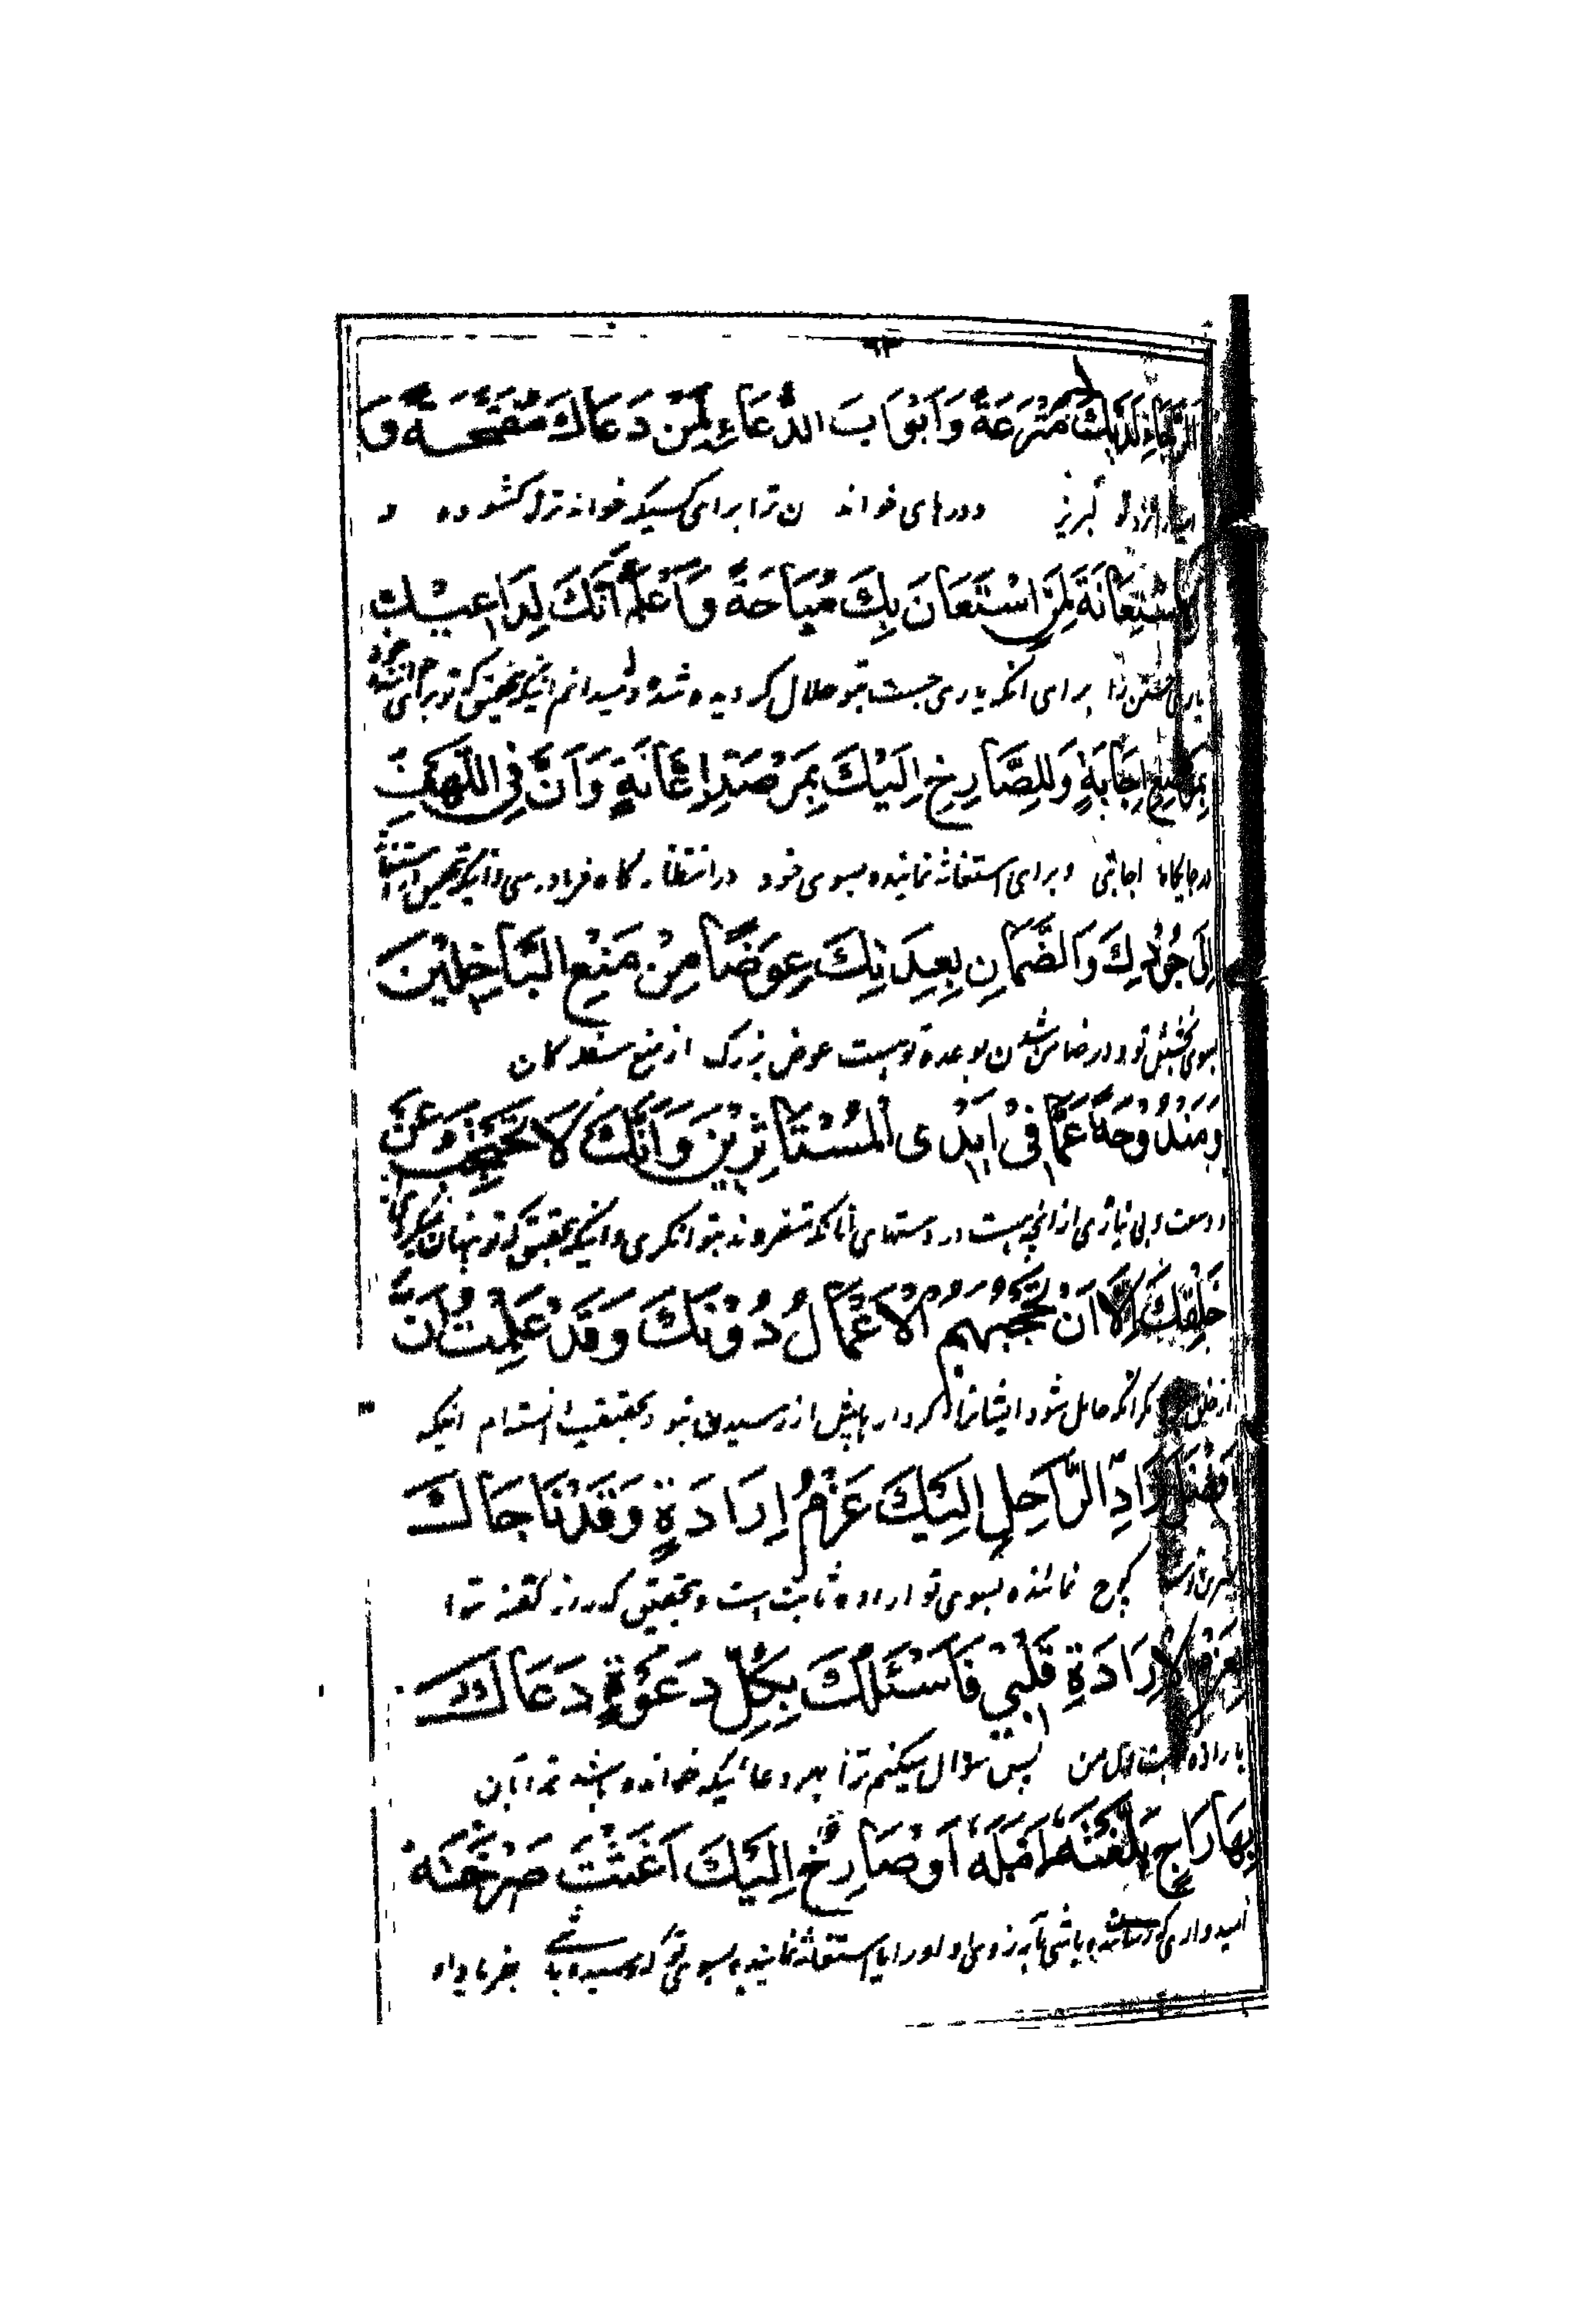 الرَّجَاءِ لَدَيْكَ مُتْرَعَةً وَاَبْوَابَ الدُّعَاءِ لِمَنْ دَعَاكَ مُفَتَّحَةً وَا
لبریز ودرهای خواند ن ترا برای کسیکه خواند ترا کشوده و
لْاِسْتِعَانَةَ لِمَنِ اسْتَعَانَ بِكَ مُبَاحَةً وَاَعْلَمُ اَنَّكَ لِدَاعِيْكَ
برای آنکه یاری جست بتو حلال کردیده شده ومیدانم اینکه بتحقیق که تو برای
بِمَوْضِعِ اِجَابَةٍ وَلِلصَّارِخِ اِلَيْكَ بِمَرْصَدِ اِغَاثَةٍ وَاَنَّ فِي اللَّهْفِ
اجابتی وبرای استغاثه نماینده بسوی خود در انتظار کاه فریادرسی
اِلَى جُوْدِكَ وَالضَّمَانِ بِعِدَتِكَ عِوَضًا مِنْ مَنْعِ الْبَاخِلِيْنَ
بسوی بخشش تو و در ضامن شدن بوعده تو هست عوض بزرک از منع
وَمَنْدُوْحَةً عَمَّا فِيْ اَيْدِى الْمُسْتَاثِرِيْنَ وَاَنَّكَ لَا تَحْتَجِبُ عَنْ
و وسعت و بی نیازی از آنچه هست در دستهای آنانکه متفردند بتوانکری واینکه بتحقیق که تو پنهان
خَلْقِكَ اِلَّا اَنْ تَحْجُبَهُمُ الْاَعْمَالُ دُوْنَكَ وَقَدْ عَلِمْتُ اَنَّ
از خلق مکر آنکه حایل شود ایشانرا کردارها پیش از رسیدن بتو وبتحقیقت دانسته ام اینکه
اَفْضَلَ زَادِ الرَّاحِلِ اِلَيْكَ عَزْمُ اِرَادَةٍ وَقَدْ نَاجَاكَ
کوچ نمائنده بسوی تو اراده ثابت است وبتحقیق که راز گفته ترا
بِعَزْمِ الْاِرَادَةِ قَلْبِيْ فَاَسْئَلُكَ بِكُلِّ دَعْوَةٍ دَعَاكَ
دل من پس سؤال میکنم ترا بهر دعائیکه خوانده باشد ترا بآن
بِهَا رَاجٍ بَلَّغْتَهُ اَمَلَهُ اَوْ صَارِخٌ اِلَيْكَ اَغَثْتَ صَرْخَتَهُ
امیدواری که رسانیده باشی بآرزوهای او را یا استغاثه نماینده بسوی تو که رسیده باشی بفریاد او